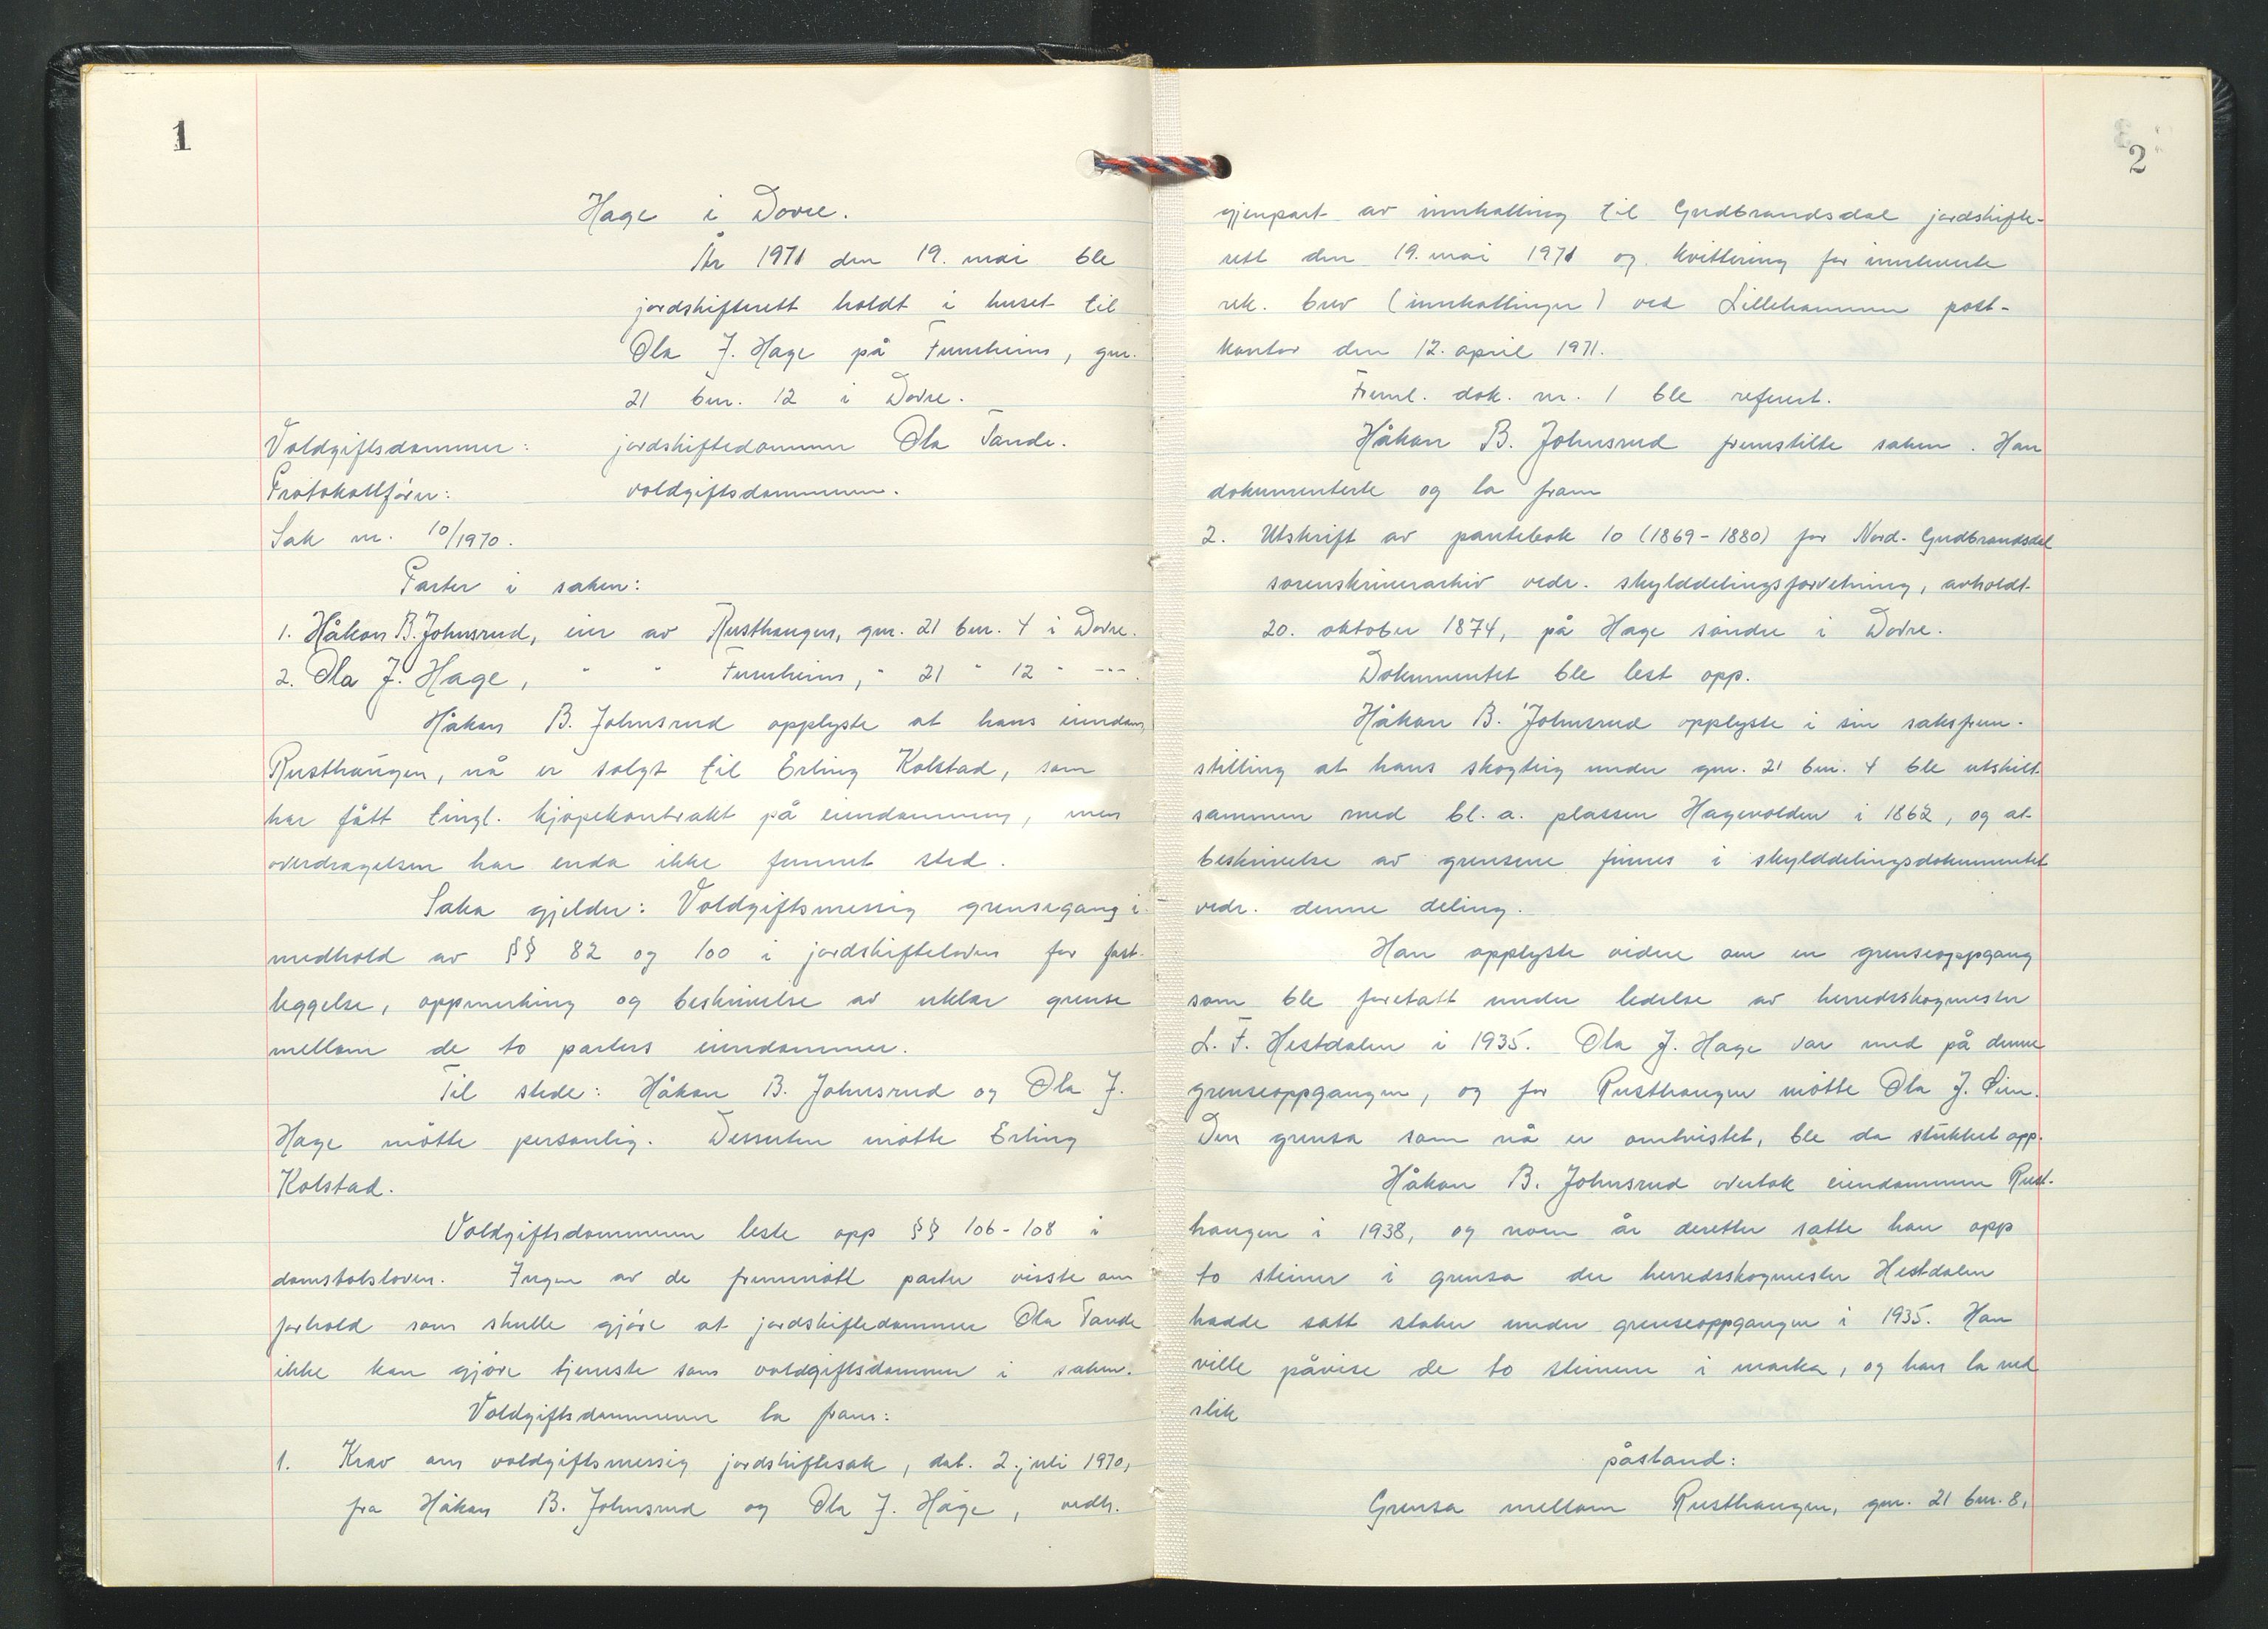 1
Hage i Dovre.
År 1971 den 19. mai ble
jordskifterett holdt i huset til
Ola J. Hage på Furuheim, gnr.
21 bnr. 12 i Dovre.
Voldgiftsdommer: jordskiftedommer Ola Tande.
Protokollfører: voldgiftsdommeren.
Sak nr. 10/1970.
Parter i saken:
1. Håkon B. Johnsrud, eier av Rusthaugen, gnr. 21 bnr. 4 i Dovre.
2. Ola J. Hage, " " Furuheim, " 21 " 12 " ---.
Håkon B. Johnsrud opplyste at hans eiendom,
Rusthaugen, nå er solgt til Erling Kolstad, som
har fått tingl. kjøpekontrakt på eiendommen, men
overdragelsen har enda ikke funnet sted.
Saka gjelder: Voldgiftsmessig grensegang i
medhold av §§ 82 og 100 i jordskifteloven for fast-
leggelse, oppmerking og beskrivelse av uklar grense
mellom de to parters eiendommer.
Til stede: Håkon B. Johnsrud og Ola J.
Hage møtte personlig. Dessuten møtte Erling
Kolstad.
Voldgiftsdommeren leste opp §§ 106-108 i
domstolsloven. Ingen av de fremmøtte parter visste om
forhold som skulle gjøre at jordskiftedommer Ola Tande
ikke kan gjøre tjeneste som voldgiftsdommer i saken.
Voldgiftsdommeren la fram:
1. Krav om voldgiftsmessig jordskiftesak, dat. 2. juli 1970,
fra Håkon B. Johnsrud og Ola J. Hage, vedh.
2
gjenpart av innkalling til Gudbrandsdal jordskifte-
rett den 19. mai 1971 og kvittering for innleverte
rek. brev (innkallinger) ved Lillehammer post-
kontor den 12. april 1971.
Freml. dok. nr. 1 ble referert.
Håkon B. Johnsrud fremstilte saken. Han
dokumenterte og la fram
2. Utskrift av pantebok 10 (1869-1880) for Nord-Gudbrandsdal
sorenskriverarkiv vedr. skylddelingsforretning, avholdt
20. oktober 1874, på Hage søndre i Dovre.
Dokumentet ble lest opp.
Håkon B. Johnsrud opplyste i sin saksfrem-
stilling at hans skogteig under gnr. 21 bnr. 4 ble utskilt
sammen med bl.a. plassen Hagevolden i 1862, og at
beskrivelse av grensene finnes i skylddelingsdokumentet
vedr. denne deling.
Han opplyste videre om en grenseoppgang
som ble foretatt under ledelse av herredsskogmester
L. F. Hestdalen i 1935. Ola J. Hage var med på denne
grenseoppgangen, og for Rusthaugen møtte Ola J.
Den grensa som nå er omtvistet, ble da stukket opp.
Håkon B. Johnsrud overtok eiendommen Rust-
haugen i 1938, og noen år deretter satte han opp
to steiner i grensa der herredsskogmester Hestdalen
hadde satt staker under grenseoppgangen i 1935. Han
ville påvise de to steinene i marka, og han la ned
slik
påstand:
Grensa mellom Rusthaugen, gnr. 21 bnr. 8,